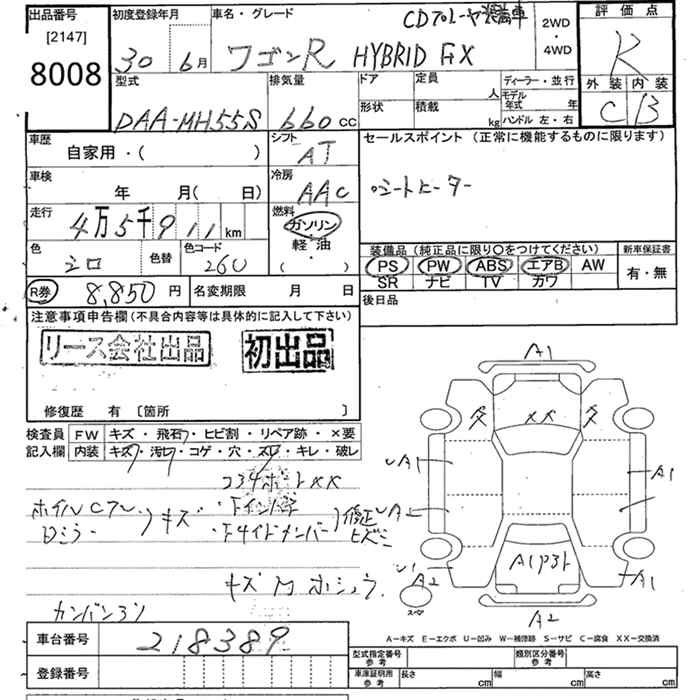 出品番号
[2147]
8008
初度登録年月
30年 6月
車名・グレード
ワゴンR HYBRID FX
CDプレーヤ装着車
2WD
・
4WD
評価点
R
外装 内装
C B
型式
DAA-MH55S
排気量
660 cc
ドア
定員
人
形状
積載
kg
ディーラー・並行
モデル年式 年
ハンドル 左・右
車歴
自家用・( )
シフト
AT
車検
年 月( 日)
冷房
AAC
走行
4万5千911km
燃料
ガソリン
軽・油
( ・ )
色
シロ
色替
色コード
26U
セールスポイント (正常に機能するものに限ります)
シートヒーター
装備品 (純正品に限り○をつけてください)
PS PW ABS エアB AW
SR ナビ TV カワ
新車保証書
有・無
R券 8,850円
名変期限 月 日
後日品
注意事項申告欄(不具合内容等は具体的に記入して下さい)
リース会社出品
初出品
修復歴 有 〔箇所 〕
検査員記入欄
FW キズ・飛石・ヒビ割・リペア跡・×要
内装 キズ・汚レ・コゲ・穴・スレ・キレ・破レ
コアサポートXX
ホイルCアル
ロミラー
)キズ
・Fインパネ
・Fサイドメンバー
)修正
ヒズミ
キズ M ホシュウ
カンバンアト
車台番号 218389
登録番号
A1
XX
A1
A1
A2
A1
A2
A1
A2
スペア
A-キズ E-エクボ U-凹み W-補修跡 S-サビ C-腐食 XX-交換済
型式指定番号
参考
類別区分番号
参考
車庫証明用
参考
長さ cm
幅 cm
高さ cm